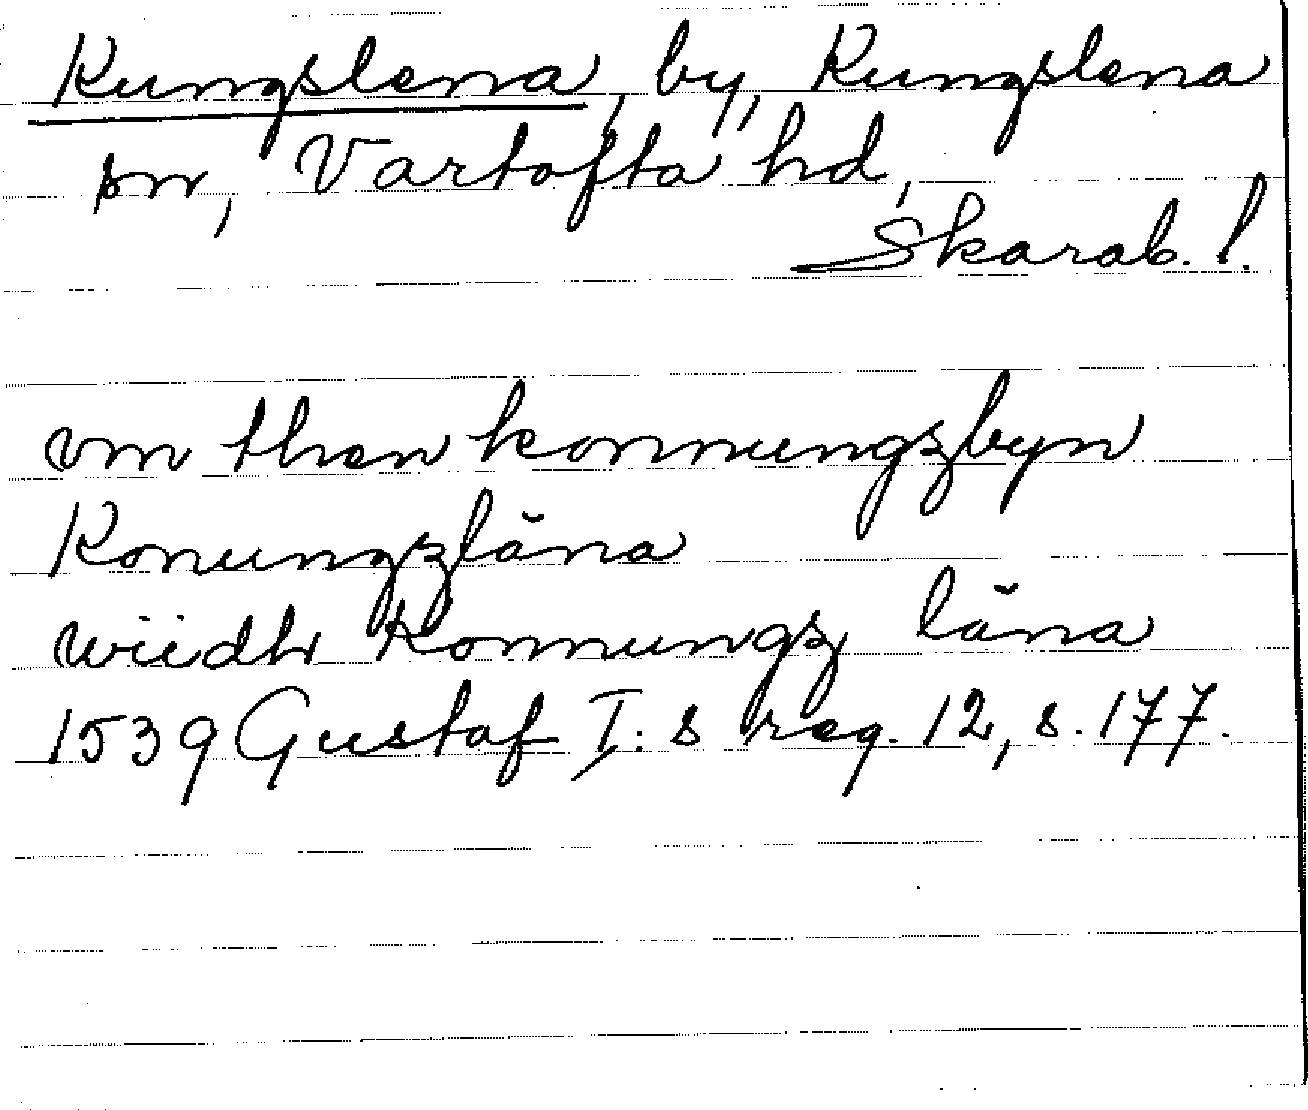 Kungslena, by, Kungslena
sn, Vartofta hd,
Skarab. l.
vm then konnungzbyn
Konungzläna
wiidh Konnungz läna
1539 Gustaf I:s reg. 12, s. 177.